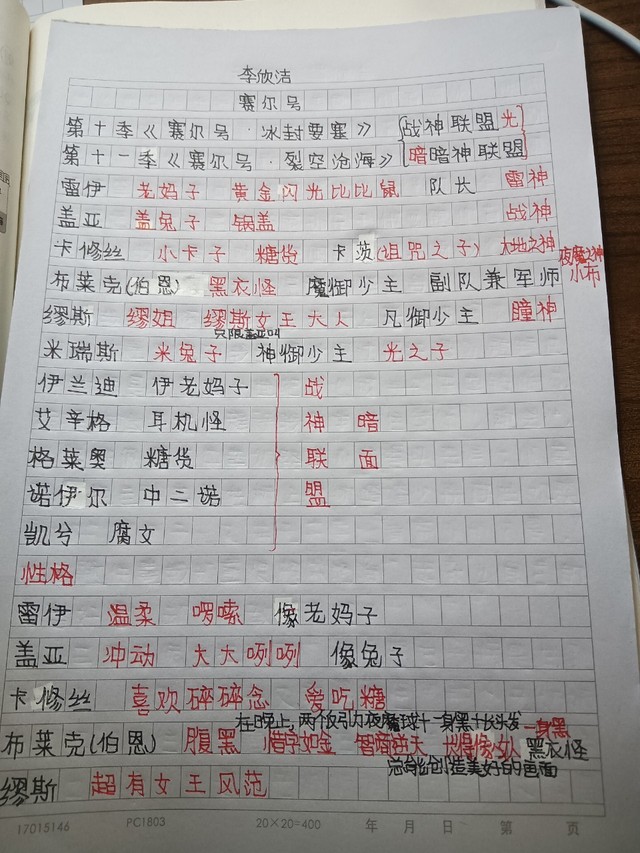 李欣洁
赛尔号
第十季《赛尔号·冰封要塞》 战神联盟光
第十一季《赛尔号·裂空沧海》 暗暗神联盟
雷伊 老妈子 黄金闪光比比鼠 队长 雷神
盖亚 盖兔子 锅盖 战神
卡修丝 小卡子 糖货 卡茨(诅咒之子) 大地之神 夜魔之神
布莱克(伯恩) 黑衣怪 魔御少主 副队兼军师 小布
缪斯 缪姐 缪斯女王大人 凡御少主 瞳神
只限盖亚叫
米瑞斯 米兔子 神御少主 光之子
伊兰迪 伊老妈子 战
艾辛格 耳机怪 神 暗
格莱奥 糖货 联 面
诺伊尔 中二诺 盟
凯兮 腐文
性格
雷伊 温柔 啰嗦 像老妈子
盖亚 冲动 大大咧咧 像兔子
卡修丝 喜欢碎碎念 爱吃糖
在晚上,两个仅引力夜魔球十一身黑十长头发 一身黑
布莱克(伯恩) 腹黑 惜字如金 智商逆天 长得像女人 黑衣怪
总能创造美好的画面
缪斯 超有女王风范
17015146 PC1803 20×20=400 年 月 日 第 页